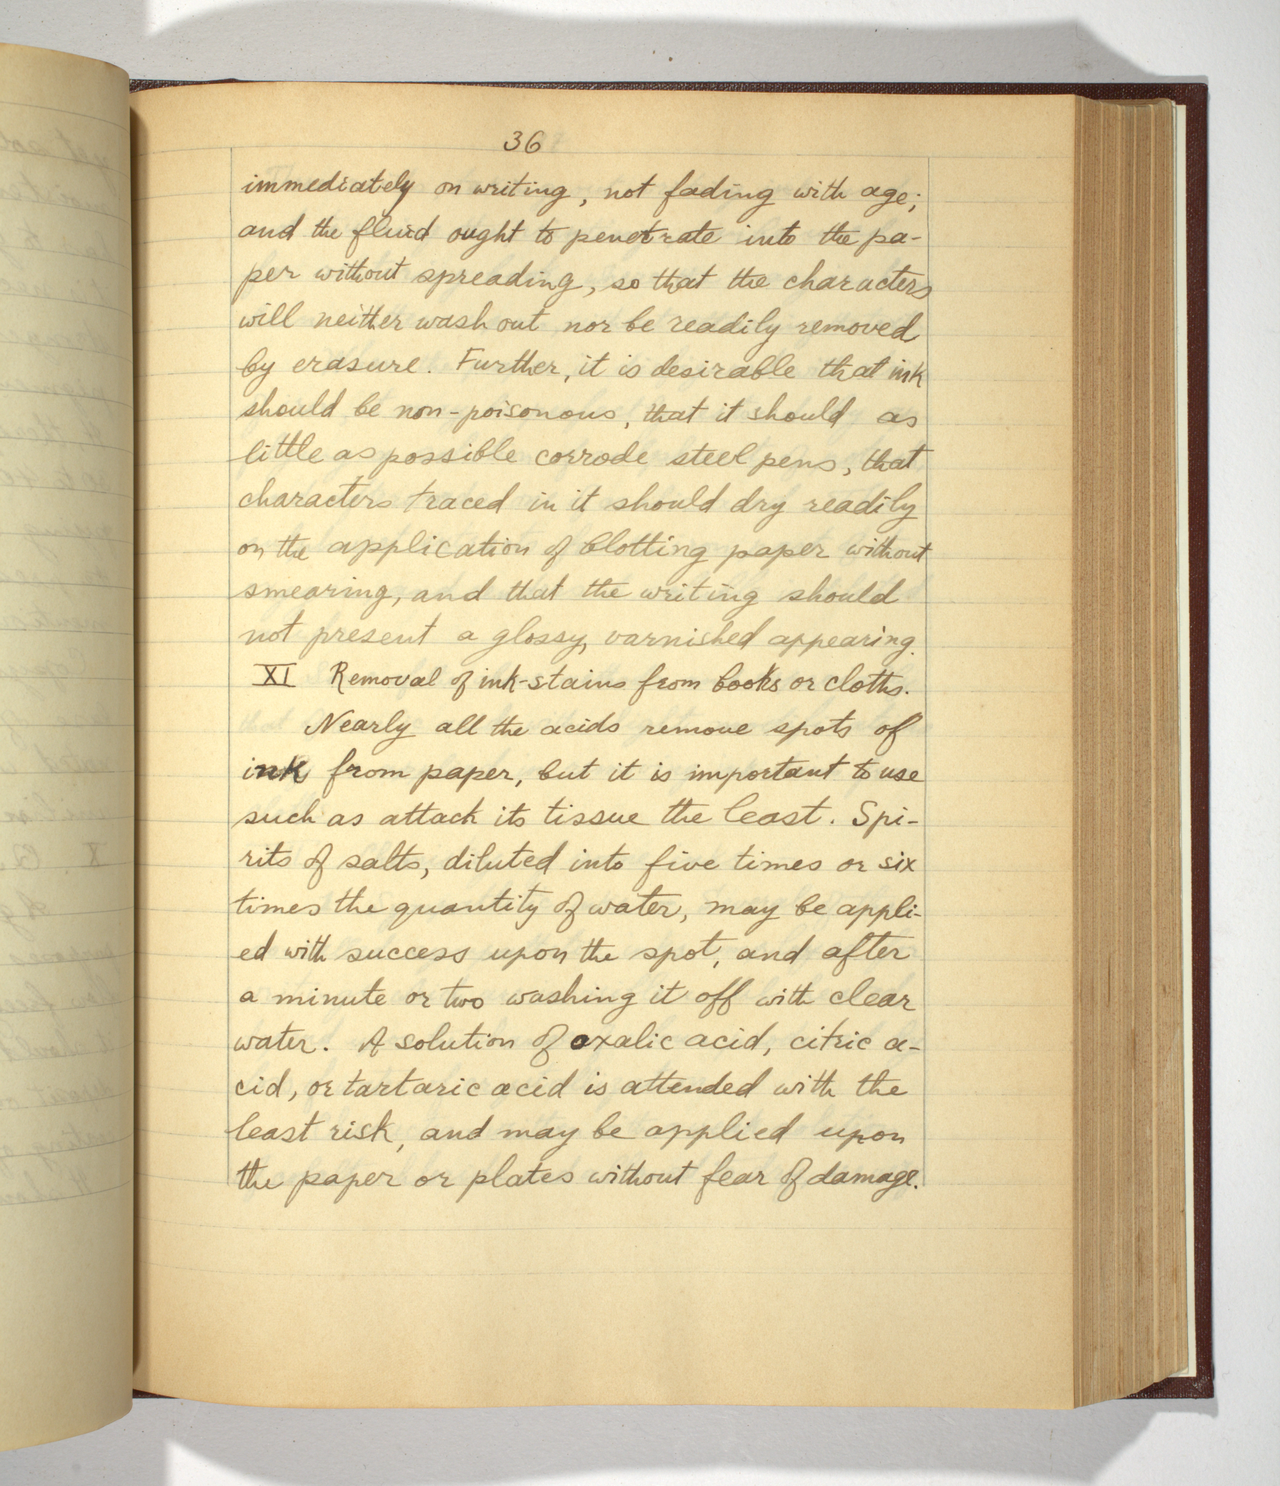 36
immediately on writing, not fading with age;
and the fluid ought to penetrate into the pa-
per without spreading, so that the characters
will neither wash out nor be readily removed
by erasure. Further, it is desirable that ink
should be non-poisonous, that it should as
little as possible corrode steel pens, that
characters traced in it should dry readily
on the application of blotting paper without
smearing, and that the writing should
not present a glossy, varnished appearing.
XI Removal of ink-stains from books or cloths.
Nearly all the acids remove spots of
ink from paper, but it is important to use
such as attack its tissue the least. Spi-
rits of salts, diluted into five times or six
times the quantity of water, may be appli-
ed with success upon the spot, and after
a minute or two washing it off with clear
water. A solution of oxalic acid, citric a-
cid, or tartaric acid is attended with the
least risk, and may be applied upon
the paper or plates without fear of damage.